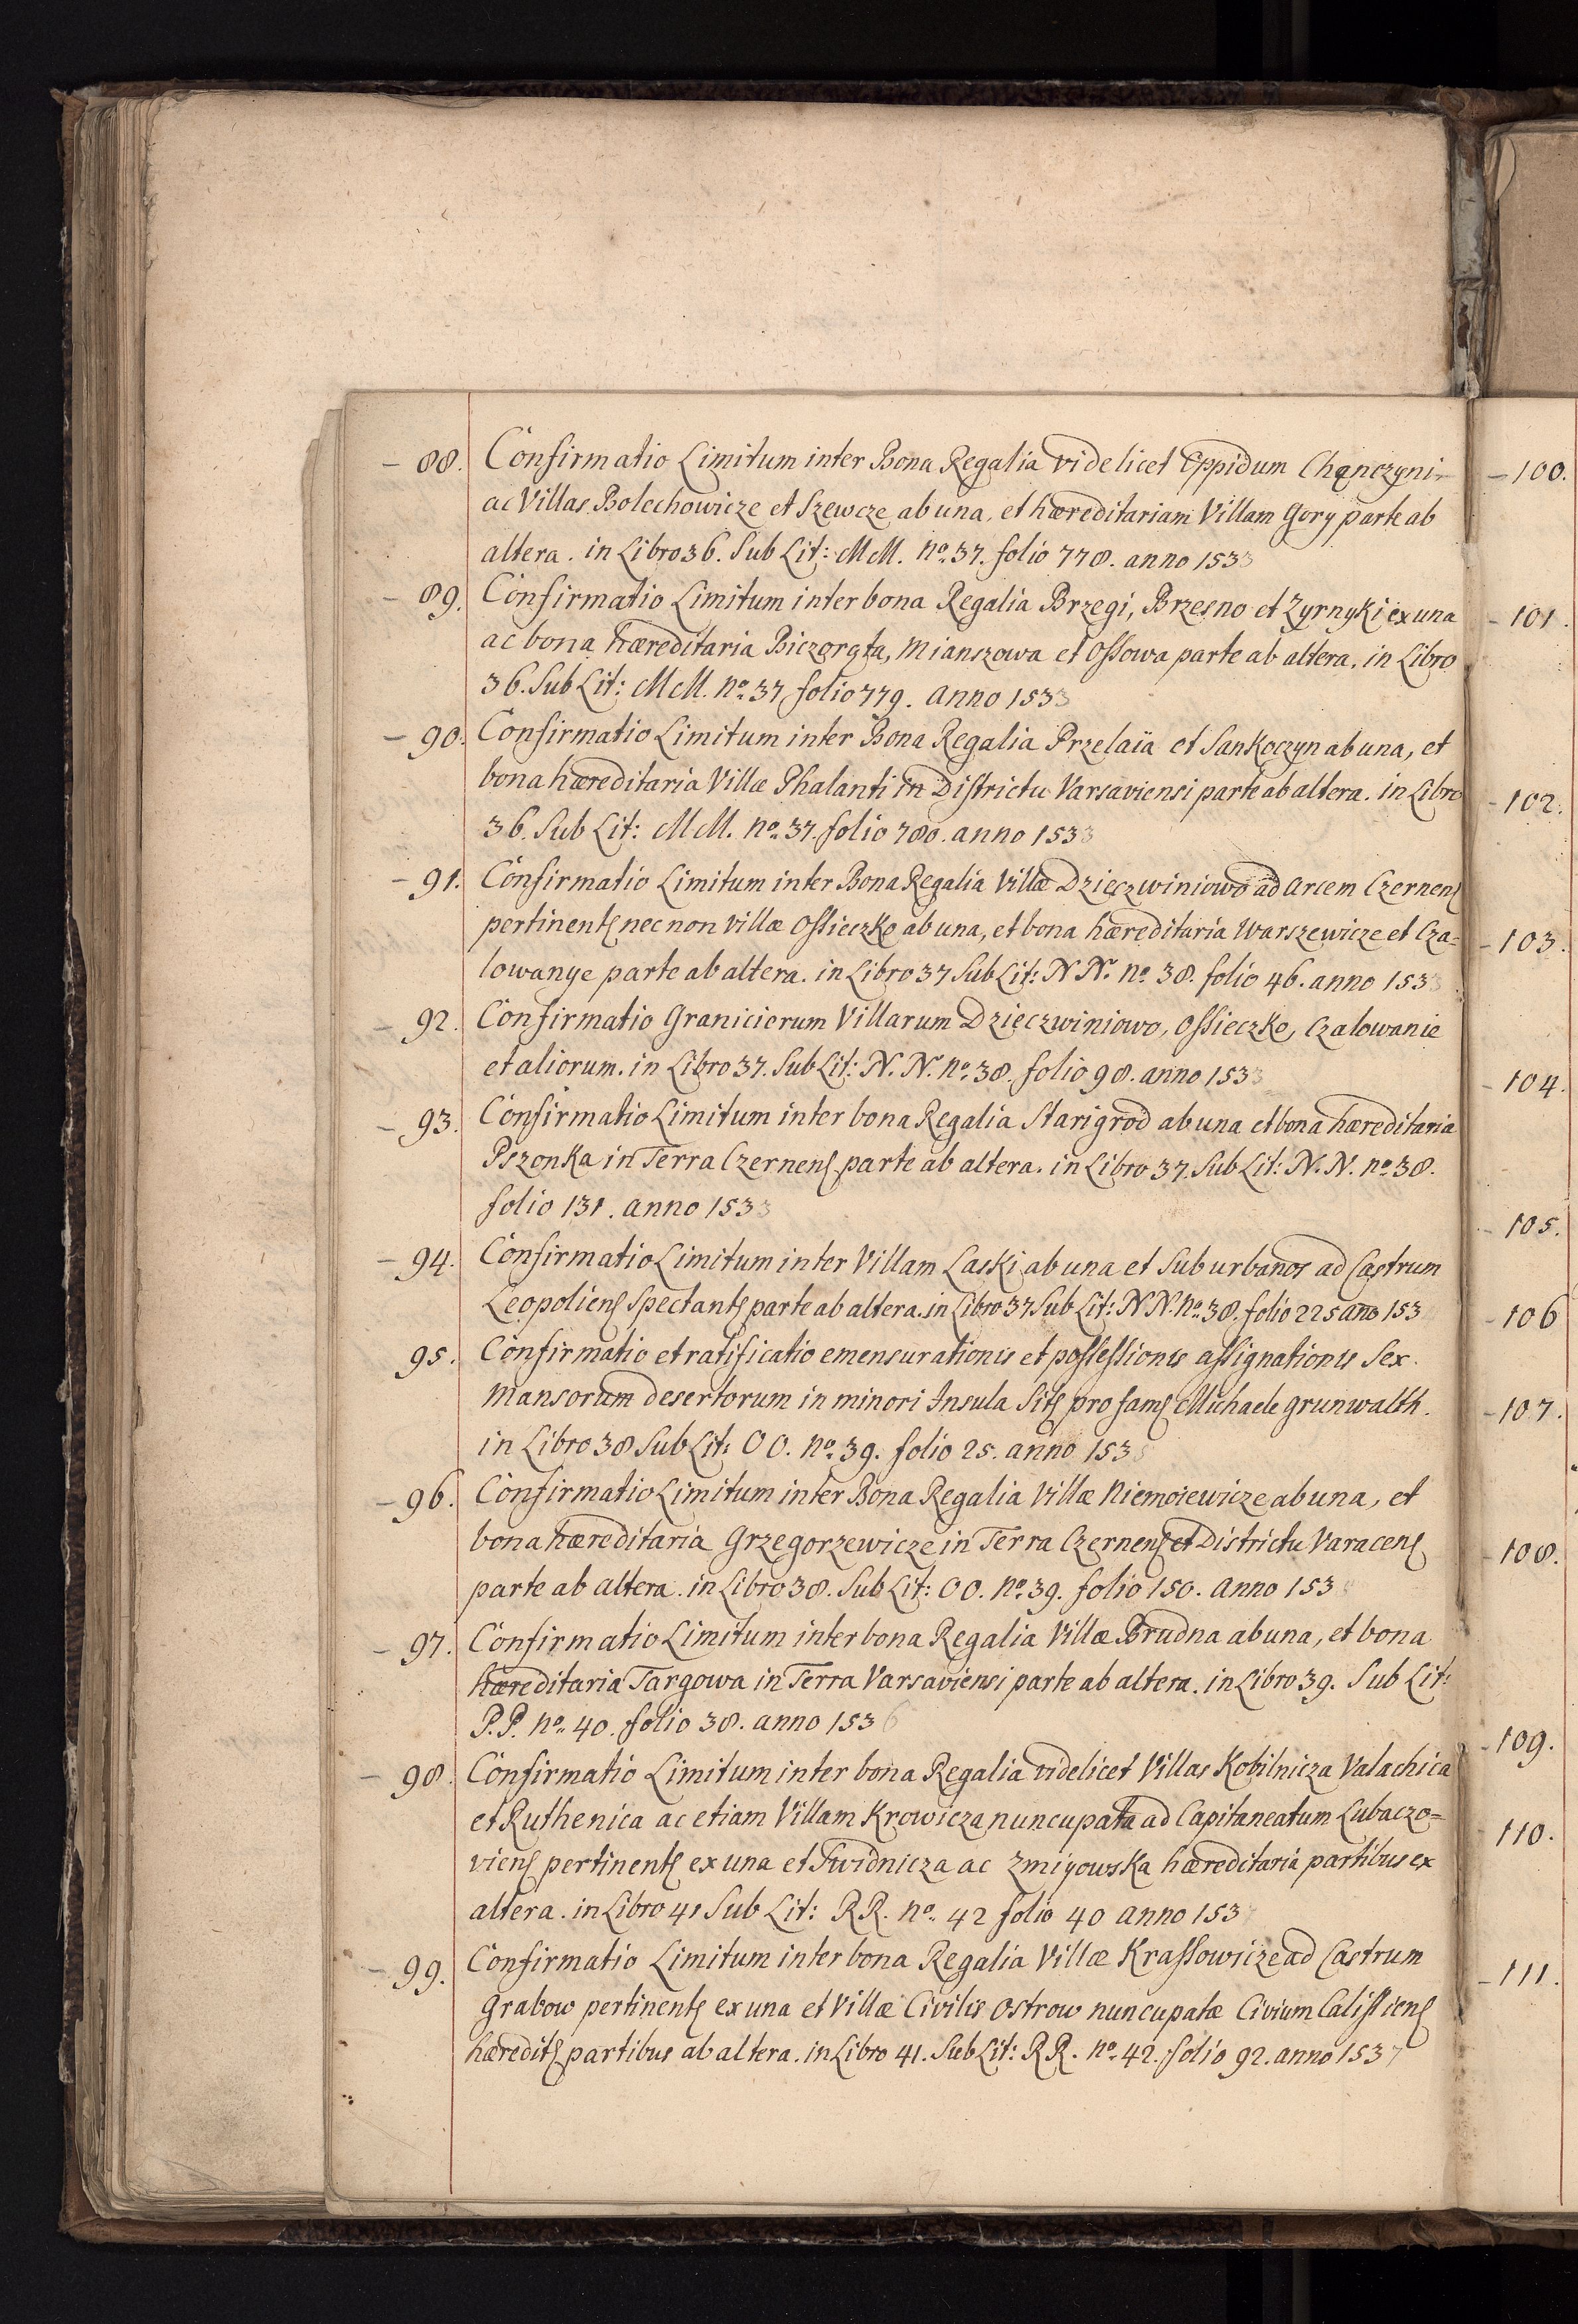 – 88. Confirmatio Limitum inter Bona Regalia videlicet Oppidum Chęnczyni-
ac Villas Bolechowicze et Szewcze ab una, et hæreditariam Villam Gory parte ab
altera. in Libro 36. Sub Lit: MM. No. 37. folio 778. anno 1533
– 89. Confirmatio Limitum inter bona Regalia Brzegi, Brzesno et Zyrnyki ex una
ac bona hæreditaria Mianszowa et Ossowa parte ab altera. in Libro
36. Sub Lit: MM. No. 37 folio 779. Anno 1533
– 90. Confirmatio Limitum inter Bona Regalia Przelaïa et Sankoczyn ab una, et
bona hæreditaria Villæ Phalanti in Districtu Varsaviensi parte ab altera. in Libro
36. Sub Lit: MM. No. 37. folio 780. anno 1533
– 91. Confirmatio Limitum inter Bona Regalia Villæ Dzięczwiniowo ad Arcem Czernens
pertinents nec non villæ Ossieczko ab una, et bona hæreditaria Warszewicze et Cza=
lowanye parte ab altera. in Libro 37 Sub Lit: N N. No. 38. folio 46. anno 1533
– 92. Confirmatio Granicierum Villarum Dzięczwiniowo, Ossieczko, Czalowanie
et aliorum. in Libro 37. Sub Lit: N. N. No. 38. folio 98. anno 1533
– 93. Confirmatio Limitum inter bona Regalia Starigrod ab una et bona hæreditaria
Pszonka in Terra Czernens parte ab altera. in Libro 37. Sub Lit: N. N. No. 38.
folio 131. anno 1533
– 94. Confirmatio Limitum inter Villam Laski ab una et Suburbanos ad Castrum
Leopoliens Spectants parte ab altera. in Libro 37 Sub Lit: N N. No. 38. folio 225 ano 153
95. Confirmatio et ratificatio emensurationis et possessionis assignationis Sex
Mansorum desertorum in minori Insula Sits pro fams Michaele Grunwalth.
in Libro 38 Sub Lit: OO. No. 39. folio 25. anno 1535
– 96. Confirmatio Limitum inter Bona Regalia Villæ Niemoiewicze ab una, et
bona hæreditaria Grzegorzewicze in Terra Czernens et Districtu Varacens
parte ab altera. in Libro 38. Sub Lit: OO. No. 39. folio 150. Anno 153
– 97. Confirmatio Limitum inter bona Regalia Villæ Brudna ab una, et bona
hæreditaria Targowa in Terra Varsaviensi parte ab altera. in Libro 39. Sub Lit:
P.P. No. 40. folio 38. anno 1536
– 98. Confirmatio Limitum inter bona Regalia videlicet Villas Kobilnicza Valachica
et Ruthenica ac etiam Villam Krowicza nuncupata ad Capitaneatum Lubaczo=
viens pertinents ex una et Swidnicza ac Zmiyowska hæreditaria partibus ex
altera. in Libro 41 Sub Lit: RR. No. 42 folio 40 anno 1537
– 99. Confirmatio Limitum inter bona Regalia Villæ Krassowicze ad Castrum
Grabow pertinents ex una et Villæ Civilis Ostrow nuncupatæ Civium Calissiens
hæredits partibus ab altera. in Libro 41. Sub Lit: RR. No. 42. folio 92. anno 1537
– 100.
– 101.
– 102.
– 103.
– 104.
– 105.
– 106
– 107.
– 108.
– 109.
– 110.
– 111.